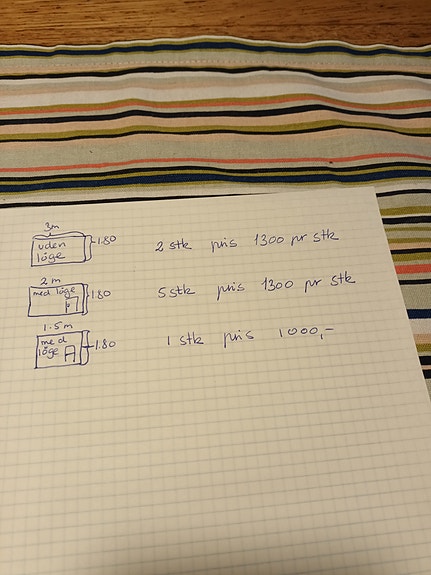 3m
uden
låge
1.80
2 stk pris 1300 pr stk
2 m
med låge
1.80
5 stk pris 1300 pr stk
1.5 m
med
låge
1.80
1 stk pris 1000,-